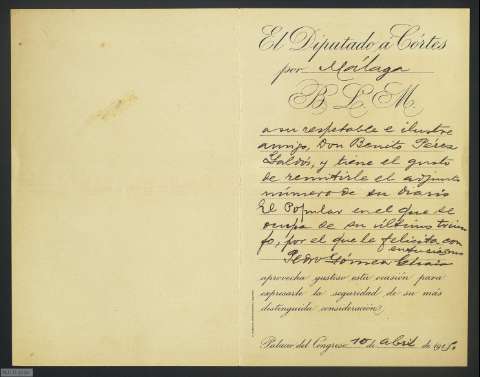 El Diputado á Córtes
por Málaga
B. L. M.
a su respetable e ilustre
amigo, Don Benito Pérez
Galdós, y tiene el gusto
de remitirle el adjunto
número de su diario
El Popular en el que se
ocupa de su último triun
fo, por el que le felicita con
entusiasmo
Pedro Gómez Chaix
aprovecha gustoso esta ocasión para
expresarle la seguridad de su más
distinguida consideración.
Palacio del Congreso 10 de abril de 191